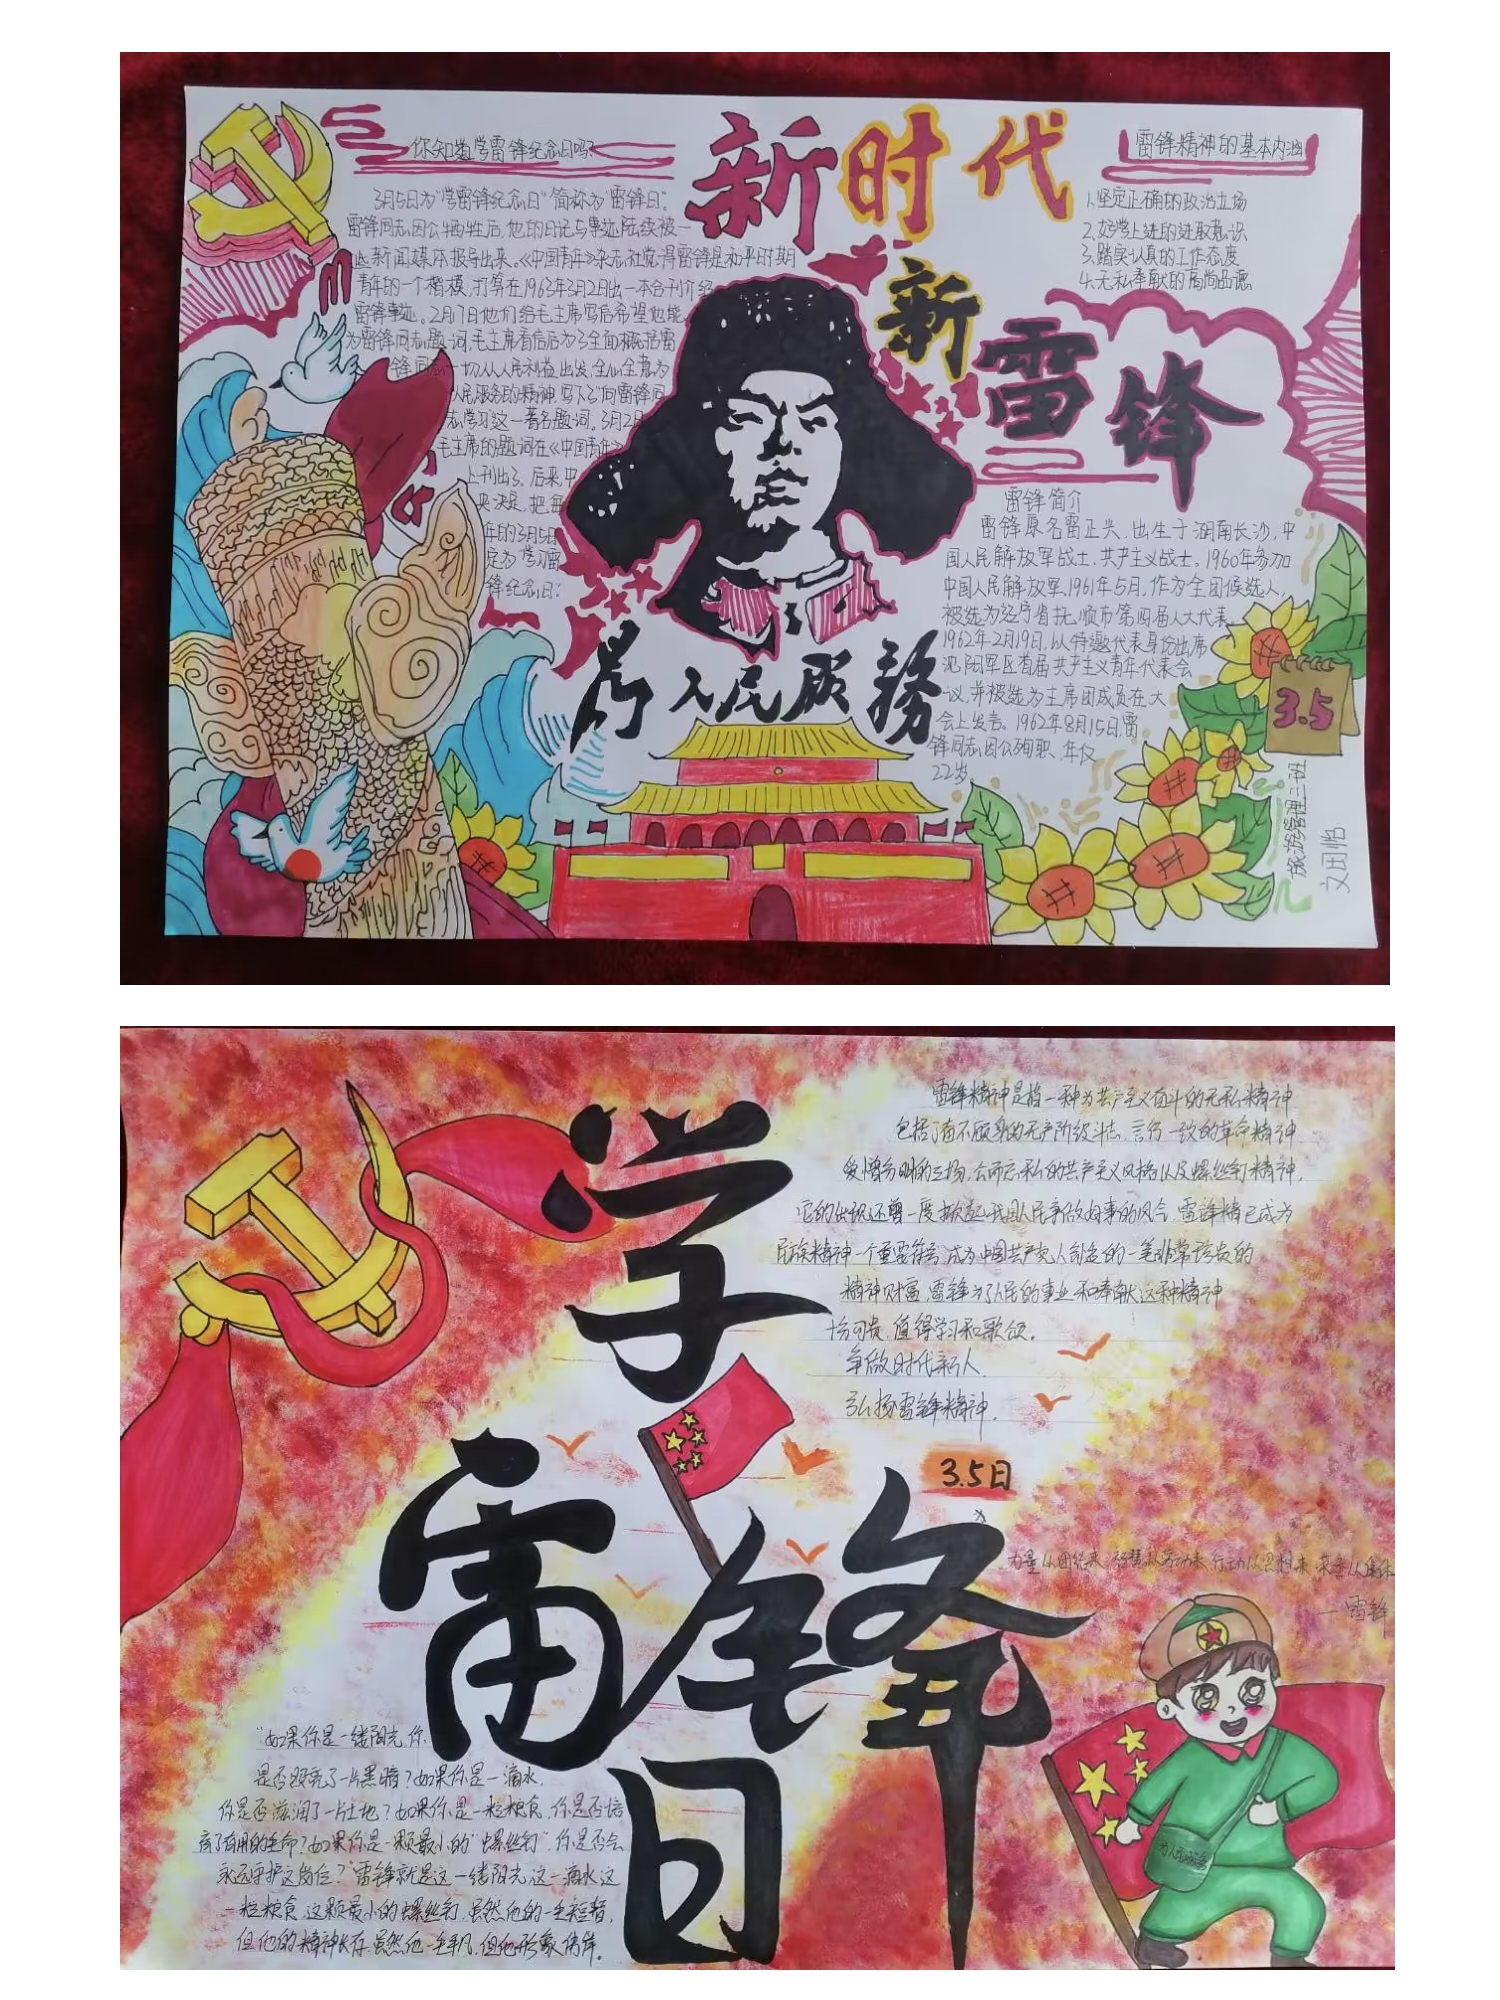 新时代
新
雷锋
你知道学雷锋纪念日吗?
3月5日为“学雷锋纪念日”简称为“雷锋日”。
雷锋同志因公牺牲后,他的日记与事迹陆续被一
些新闻媒体报导出来。《中国青年》杂志社觉得雷锋是和平时期
青年的一个楷模,打算在1963年3月2日出一本合刊介绍
雷锋事迹。2月17日他们给毛主席写信希望他能
为雷锋同志题词,毛主席看信后为了全面概括雷
锋同志一切从人民利益出发,全心全意为
人民服务的精神,写下了“向雷锋同
志学习这一著名题词。3月2日
毛主席的题词在《中国青年》
上刊出了。后来,中
央决定,把每
年的3月5日
定为“学习雷
锋纪念日”
雷锋精神的基本内涵
1.坚定正确的政治立场
2.好学上进的进取意识
3.踏实认真的工作态度
4.无私奉献的高尚品德
雷锋简介
雷锋原名雷正兴,出生于湖南长沙,中
国人民解放军战士,共产主义战士,1960年参加
中国人民解放军,1961年5月,作为全团候选人,
被选为辽宁省抚顺市第四届人大代表
1962年2月19日,以特邀代表身份出席
沈阳军区首届共产主义青年代表会
议,并被选为主席团成员在大
会上发言。1962年8月15日,雷
锋同志因公殉职,年仅
22岁
為人民服務
3.5
旅游管理三班
学
雷锋
日
雷锋精神是指一种为共产主义奋斗的无私精神
包括了奋不顾身的无产阶级斗志,言行一致的革命精神
爱憎分明的立场,公而忘私的共产主义风格以及螺丝钉精神,
它的出现还曾一度掀起我国人民争做好事的风气,雷锋精已成为
民族精神一个重要符号,成为中国共产党人创造的一笔非常珍贵的
精神财富,雷锋为了人民的事业和奉献这种精神
十分可贵,值得学习和歌颂。
争做时代新人
弘扬雷锋精神.
3.5日
力量从团结来 智慧从劳动来 行动从思想来 荣誉从集体
—雷锋
为人民服务
“如果你是一缕阳光,你
是否照亮了一片黑暗?如果你是一滴水,
你是否滋润了一片土地?如果你是一粒粮食,你是否哺
育了有用的生命?如果你是一颗最小的“螺丝钉”你是否会
永远守护这岗位?”雷锋就是这一缕阳光,这一滴水,这
一粒粮食,这颗最小的螺丝钉,虽然他的一生短暂,
但他的精神长存,虽然他一生平凡,但他形象伟岸。